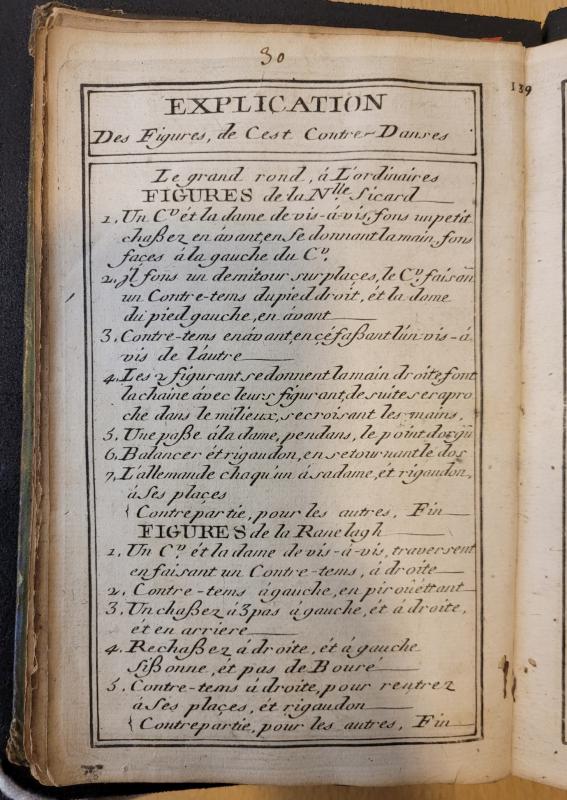 30
139
EXPLICATION
Des Figures, de Cest Contre-Danses
Le grand rond, á L'ordinaires
FIGURES de la Nlle. Sicard
1. Un Cr. ét la dame de vis-á-vis, fons un petit
chaßez en ávant, en se donnant la main, fons
façes á la gauche du Cr.
2. jl fons un demitour sur plaçes, le Cr. faisan
un Contre-tems du pied droit, ét la dame
du pied gauche, en ávant
3. Contre-tems en ávant, en çéfaßant lún vis-á-
vis de láutre
4. Les 2 figurant se donnent la main droite, font
la chaine ávec leurs figurant, de suites serapro
che dans le milieux, se croisant les mains.
5. Une paße á la dame, pendans, le point d'orgü
6. Balancer ét rigaudon, en se tournant le dos
7. L'allemande chaqu'un á sa dame, ét rigaudon,
á Ses plaçes
{ Contrepartie, pour les autres, Fin
FIGURES de la Ranelagh
1. Un Cr. ét la dame de vis-á-vis, traversent
en faisant un Contre-tems, á droite
2. Contre-tems ágauche, en piroüéttant
3. Un chaßez á 3 pas á gauche, ét á droite,
ét en arriere
4. Rechaßez á droite, ét á gauche
Sißonne, ét pas de Bouré
5. Contre-tems á droite, pour rentrez
á Ses plaçes, ét rigaudon
{ Contrepartie, pour les autres, Fin